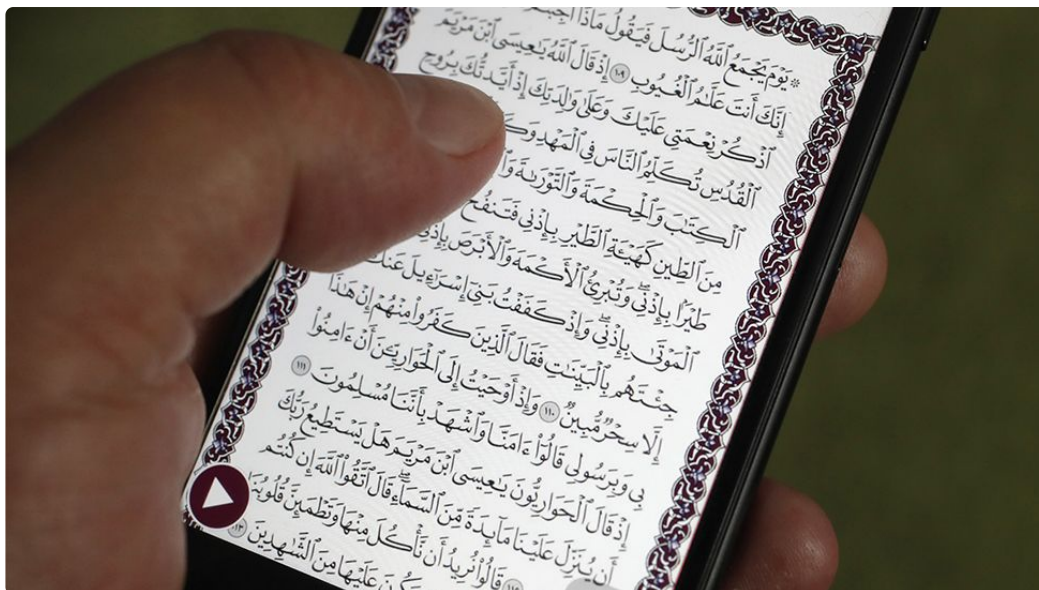 ۞ يَوْمَ يَجْمَعُ ٱللَّهُ ٱلرُّسُلَ فَيَقُولُ مَاذَآ أُجِبْتُمْ
إِنَّكَ أَنتَ عَلَّٰمُ ٱلْغُيُوبِ ١٠٩ إِذْ قَالَ ٱللَّهُ يَٰعِيسَى ٱبْنَ مَرْيَمَ
ٱذْكُرْ نِعْمَتِى عَلَيْكَ وَعَلَىٰ وَٰلِدَتِكَ إِذْ أَيَّدتُّكَ بِرُوحِ
ٱلْقُدُسِ تُكَلِّمُ ٱلنَّاسَ فِى ٱلْمَهْدِ
ٱلْكِتَٰبَ وَٱلْحِكْمَةَ وَٱلتَّوْرَىٰةَ
مِنَ ٱلطِّينِ كَهَيْـَٔةِ ٱلطَّيْرِ بِإِذْنِى فَتَنفُخُ
طَيْرًۢا بِإِذْنِى ۖ وَتُبْرِئُ ٱلْأَكْمَهَ وَٱلْأَبْرَصَ بِإِذْنِى
ٱلْمَوْتَىٰ بِإِذْنِى ۖ وَإِذْ كَفَفْتُ بَنِىٓ إِسْرَٰٓءِيلَ عَنكَ
جِئْتَهُم بِٱلْبَيِّنَٰتِ فَقَالَ ٱلَّذِينَ كَفَرُوا۟ مِنْهُمْ إِنْ هَٰذَآ
إِلَّا سِحْرٌ مُّبِينٌ ١١٠ وَإِذْ أَوْحَيْتُ إِلَى ٱلْحَوَارِيِّـۧنَ أَنْ ءَامِنُوا۟
بِى وَبِرَسُولِى قَالُوٓا۟ ءَامَنَّا وَٱشْهَدْ بِأَنَّنَا مُسْلِمُونَ ١١١
إِذْ قَالَ ٱلْحَوَارِيُّونَ يَٰعِيسَى ٱبْنَ مَرْيَمَ هَلْ يَسْتَطِيعُ رَبُّكَ
أَن يُنَزِّلَ عَلَيْنَا مَآئِدَةً مِّنَ ٱلسَّمَآءِ ۖ قَالَ ٱتَّقُوا۟ ٱللَّهَ إِن كُنتُم
١١٢ قَالُوا۟ نُرِيدُ أَن نَّأْكُلَ مِنْهَا وَتَطْمَئِنَّ قُلُوبُنَا
عَلَيْهَا مِنَ ٱلشَّٰهِدِينَ ١١٣